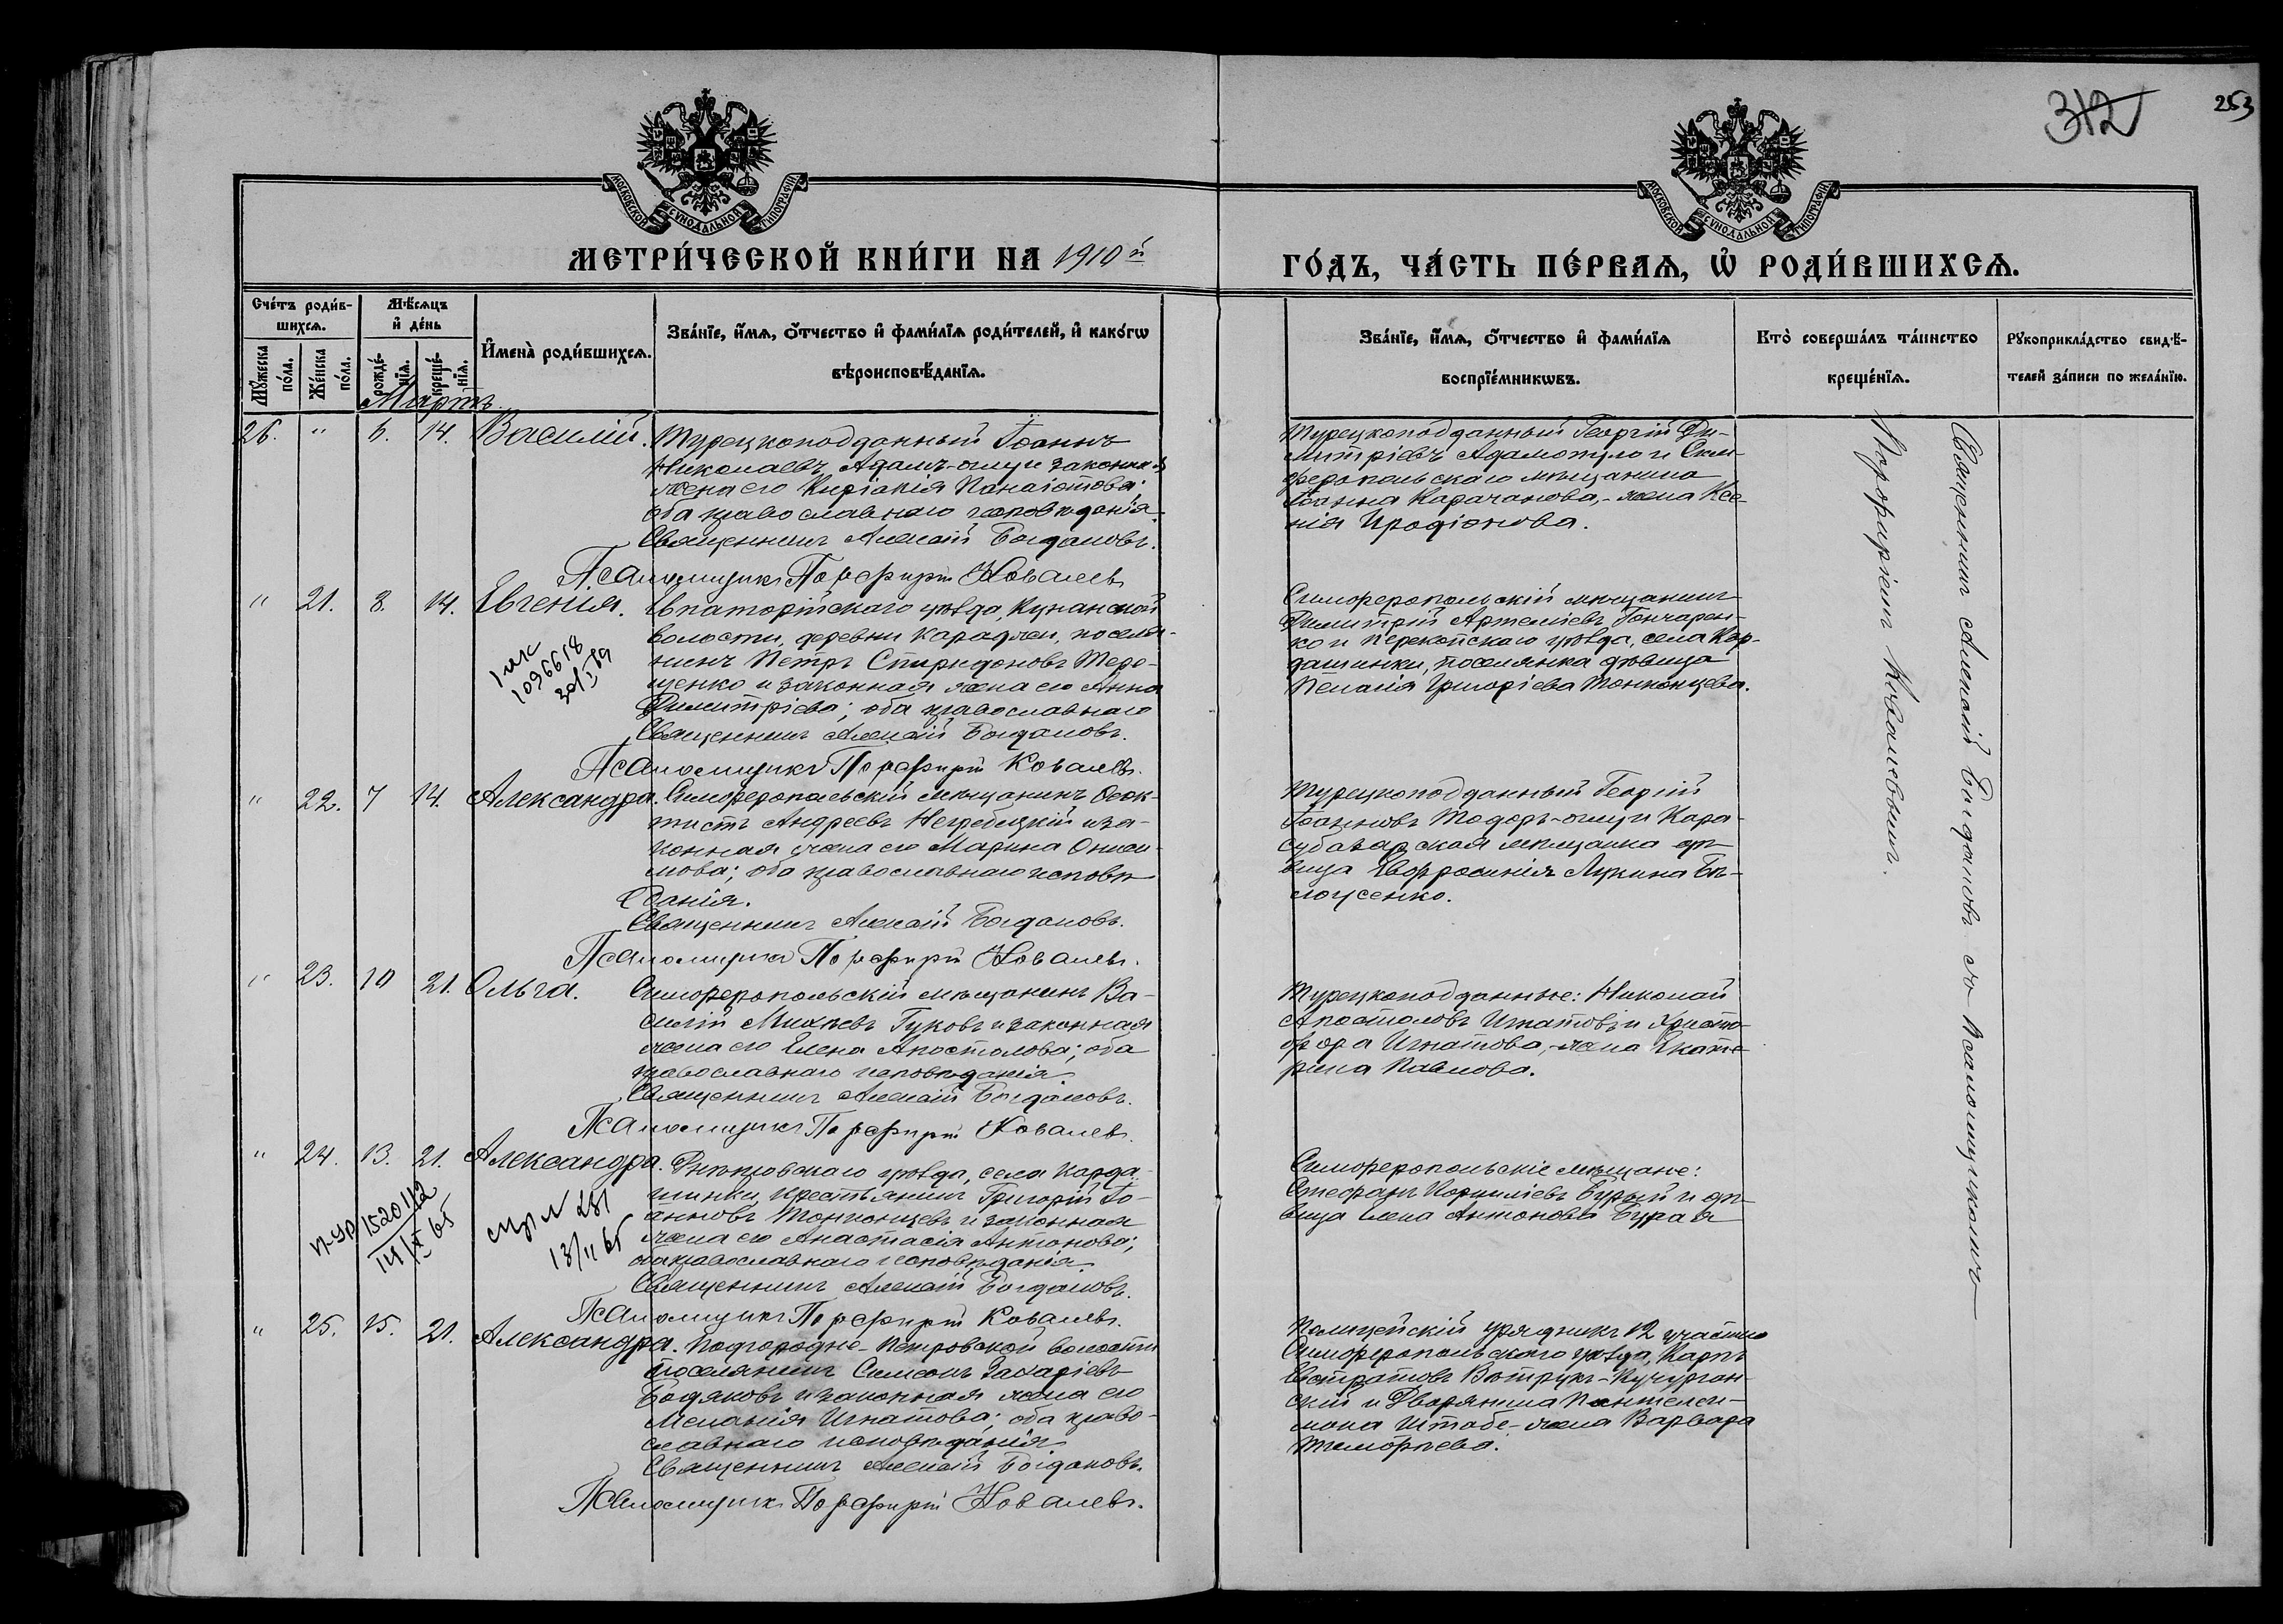 312
253
МОСКОВСКОЙ СѴНОДАЛЬНОЙ ТИПОГРАФІИ
МОСКОВСКОЙ СѴНОДАЛЬНОЙ ТИПОГРАФІИ
МЕТРИ́ЧЕСКОЙ КНИ́ГИ НА 1910й
ГО́ДЪ, ЧА́СТЬ ПЕ́РВАѦ, Ѡ҆ РОДИ́ВШИХСѦ.
Сче́тъ роди́вшихсѧ.
Мꙋ́жеска по́ла.
Же́нска по́ла.
Мѣ́сѧцъ и҆ де́нь
рожде́нїѧ.
креще́нїѧ.
И҆мена̀ роди́вшихсѧ.
Зва́нїе, и҆́мѧ, ѻ҆́тчество и҆ фами́лїѧ роди́телей, и҆ како́гѡ вѣроисповѣ́данїѧ.
Зва́нїе, и҆́мѧ, ѻ҆́тчество и҆ фами́лїѧ воспрїе́мникѡвъ.
Кто̀ соверша́лъ та́инство креще́нїѧ.
Рꙋкоприкла́дство свидѣ́телей за́писи по жела́нїю.
Мартъ
26. " 6. 14. Василій. Турецкоподданный Іоаннъ
Николаевъ Адамъ-оглу и законная
жена его Киріакія Панаіотова;
оба православнаго исповѣданія.
Священникъ Алексій Богдановъ.
Псаломщикъ Порфирій Ковалевъ
Турецкоподданный Георгій Ди-
митріевъ Адамопуло и Сим-
феропольскаго мѣщанина
Іоанна Карачанова,- жена Ксе-
нія Иродіонова.
" 21. 8. 14. Евгенія. Евпаторійскаго уѣзда, Кунанской
волости, деревни Караджи, поселя-
нинъ Петръ Спиридоновъ Тере-
щенко и законная жена его Анна
Димитріева; оба православнаго
Священникъ Алексій Богдановъ.
Псаломщикъ Порфирій Ковалевъ.
1096618
Симферопольскій мѣщанинъ
Димитрій Артеміевъ Гончарен-
ко и Перекопскаго уѣзда, села Кар-
дашинки, поселянка дѣвица
Пелагія Григоріева Тонконцева.
" 22. 7 14. Александра. Симферопольскій мѣщанинъ Ѳеок-
тистъ Андреевъ Негребецкій и за-
конная жена его Марина Ониси-
мова; оба православнаго исповѣ-
данія.
Священникъ Алексій Богдановъ.
Псаломщикъ Порфирій Ковалевъ.
Турецкоподданный Георгій
Іоанновъ Тодоръ-оглу и Кара-
субазарская мѣщанка дѣ-
вица Евфросинія Лукина Бѣ-
лоусенко.
" 23. 10 21. Ольга. Симферопольскій мѣщанинъ Ва-
силій Михѣевъ Гуковъ и законная
жена его Елена Апостолова; оба
православнаго исповѣданія.
Священникъ Алексій Богдановъ.
Псаломщикъ Порфирій Ковалевъ.
Турецкоподданные: Николай
Апостоловъ Игнатовъ и Христо-
фора Игнатова,- жена Екате-
рина Павлова.
" 24. 13. 21. Александра. Днѣпровскаго уѣзда, села Карда-
шинки, крестьянинъ Григорій Іо-
анновъ Тонконцевъ и законная
жена его Анастасія Антонова;
оба православнаго исповѣданія.
Священникъ Алексій Богдановъ.
Псаломщикъ Порфирій Ковалевъ.
Симферопольскіе мѣщане:
Стефанъ Корниліевъ Бурый и дѣ-
вица Елена Антонова Бурая
" 25. 15. 21. Александра. Подгородне-Петровской волости
поселянинъ Симеонъ Захаріевъ
Бодяковъ и законная жена его
Меланія Игнатова; оба право-
славнаго исповѣданія.
Священникъ Алексій Богдановъ.
Псаломщикъ Порфирій Ковалевъ.
Полицейскій урядникъ 12 участка
Симферопольскаго уѣзда, Карпъ
Евстратовъ Ватрукъ-Кучурган-
скій и Дворянина Пантелеи-
мона Штабе,- жена Варвара
Тимофѣева.
Священникъ Алексій Богдановъ съ Псаломщикомъ
Порфиріемъ Ковалевымъ.